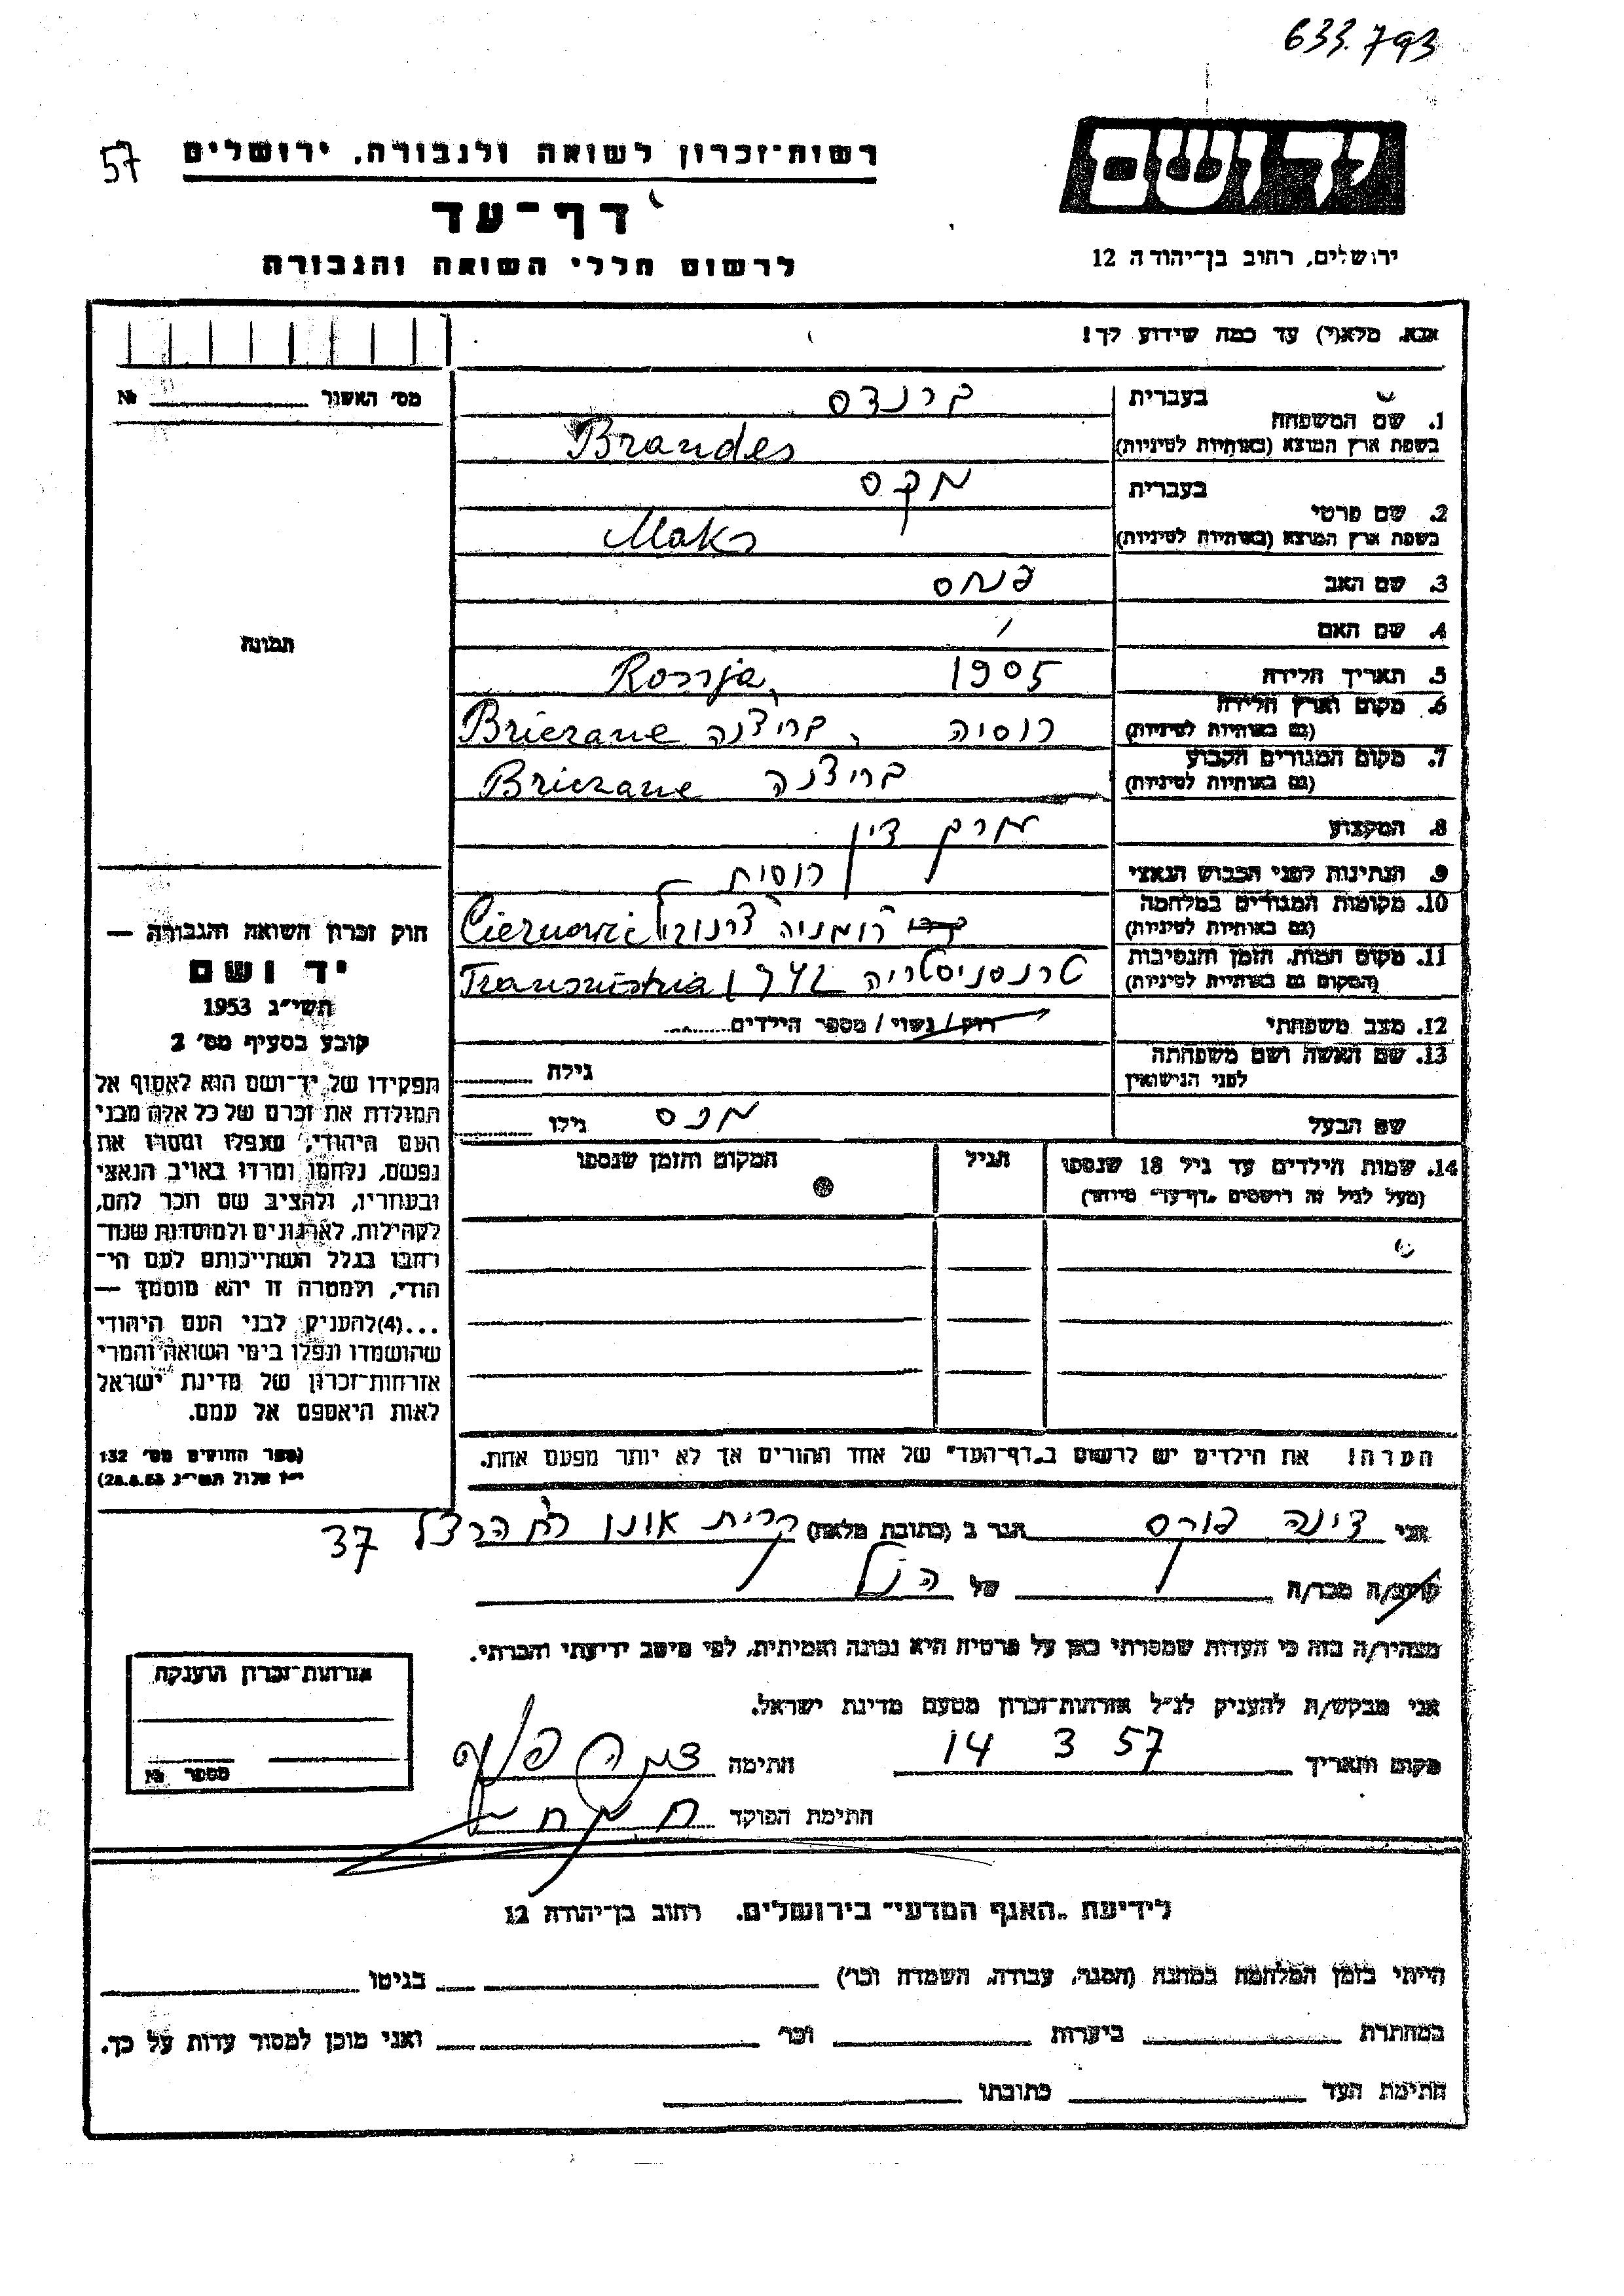 633.793
57
רשות־זכרון לשואה ולגבורה, ירושלים
דף־עד
לרשום חללי השואה והגבורה
יד ושם
ירושלים, רחוב בן־יהודה 12
אנא, מלא(י) עד כמה שידוע לך!
מס׳ האשור № 
1. שם המשפחה בעברית ברנדס
בשפת ארץ המוצא (באותיות לטיניות) Brandes
2. שם פרטי בעברית מקס
בשפת ארץ המוצא (באותיות לטיניות) Maks
3. שם האב פנחס
4. שם האם /
תמונה
5. תאריך הלידה 1905
6. מקום וארץ הלידה Rossja,
(גם באותיות לטיניות) רוסיה, בריצנה Briczane
7. מקום המגורים הקבוע
(גם באותיות לטיניות) בריצנה Briczane
8. המקצוע עורך דין
9. הנתינות לפני הכבוש הנאצי רוסית
10. מקומות המגורים במלחמה
(גם באותיות לטיניות) רומניה
11. מקום המות, הזמן והנסיבות
(המקום גם באותיות לטיניות) טרנסניסטריה 1942 Transnistria
12. מצב משפחתי רווק/נשוי/מספר הילדים........
13. שם האשה ושם משפחתה
לפני הנישואין גילה
שם הבעל גילו
14. שמות הילדים עד גיל 18 שנספו
(מעל לגיל זה רושמים „דף־עד״ מיוחד)
הגיל
המקום והזמן שנספו
הערה! את הילדים יש לרשום ב„דף־העד״ של אחד ההורים אך לא יותר מפעם אחת.
חוק זכרון השואה והגבורה —
יד ושם
תשי״ג 1953
קובע בסעיף מס׳ 2
תפקידו של יד־ושם הוא לאסוף אל
המולדת את זכרם של כל אלה מבני
העם היהודי, שנפלו ומסרו את
נפשם, נלחמו ומרדו באויב הנאצי
ובעוזריו, ולהציב שם וזכר להם,
לקהילות, לארגונים ולמוסדות שנח־
רבו בגלל השתייכותם לעם הי־
הודי, ולמטרה זו יהא מוסמך —
...(4) להעניק לבני העם היהודי
שהושמדו ונפלו בימי השואה והמרי
אזרחות־זכרון של מדינת ישראל
לאות היאספם אל עמם.
(ספר החוקים מס׳ 132
י״ז אלול תשי״ג 28.8.53)
אני דינה הגר ב (כתובת מלאה) קרית אונו רח הרצל 37
קרוב/ה מכר/ה של הנ״ל
מצהיר/ה בזה כי העדות שמסרתי כאן על פרטיה היא נכונה ואמיתית, לפי מיטב ידיעתי והכרתי.
אני מבקש/ת להעניק לנ״ל אזרחות־זכרון מטעם מדינת ישראל.
מקום ותאריך 14 3 57 חתימה
חתימת הפוקד
אזרחות־זכרון הוענקה
מספר №
לידיעת „האגף המדעי״ בירושלים, רחוב בן־יהודה 12
הייתי בזמן המלחמה במחנה (הסגר, עבודה, השמדה וכו׳) בגיטו
במחתרת ביערות וכו׳ ואני מוכן למסור עדות על כך.
חתימת העד כתובתו